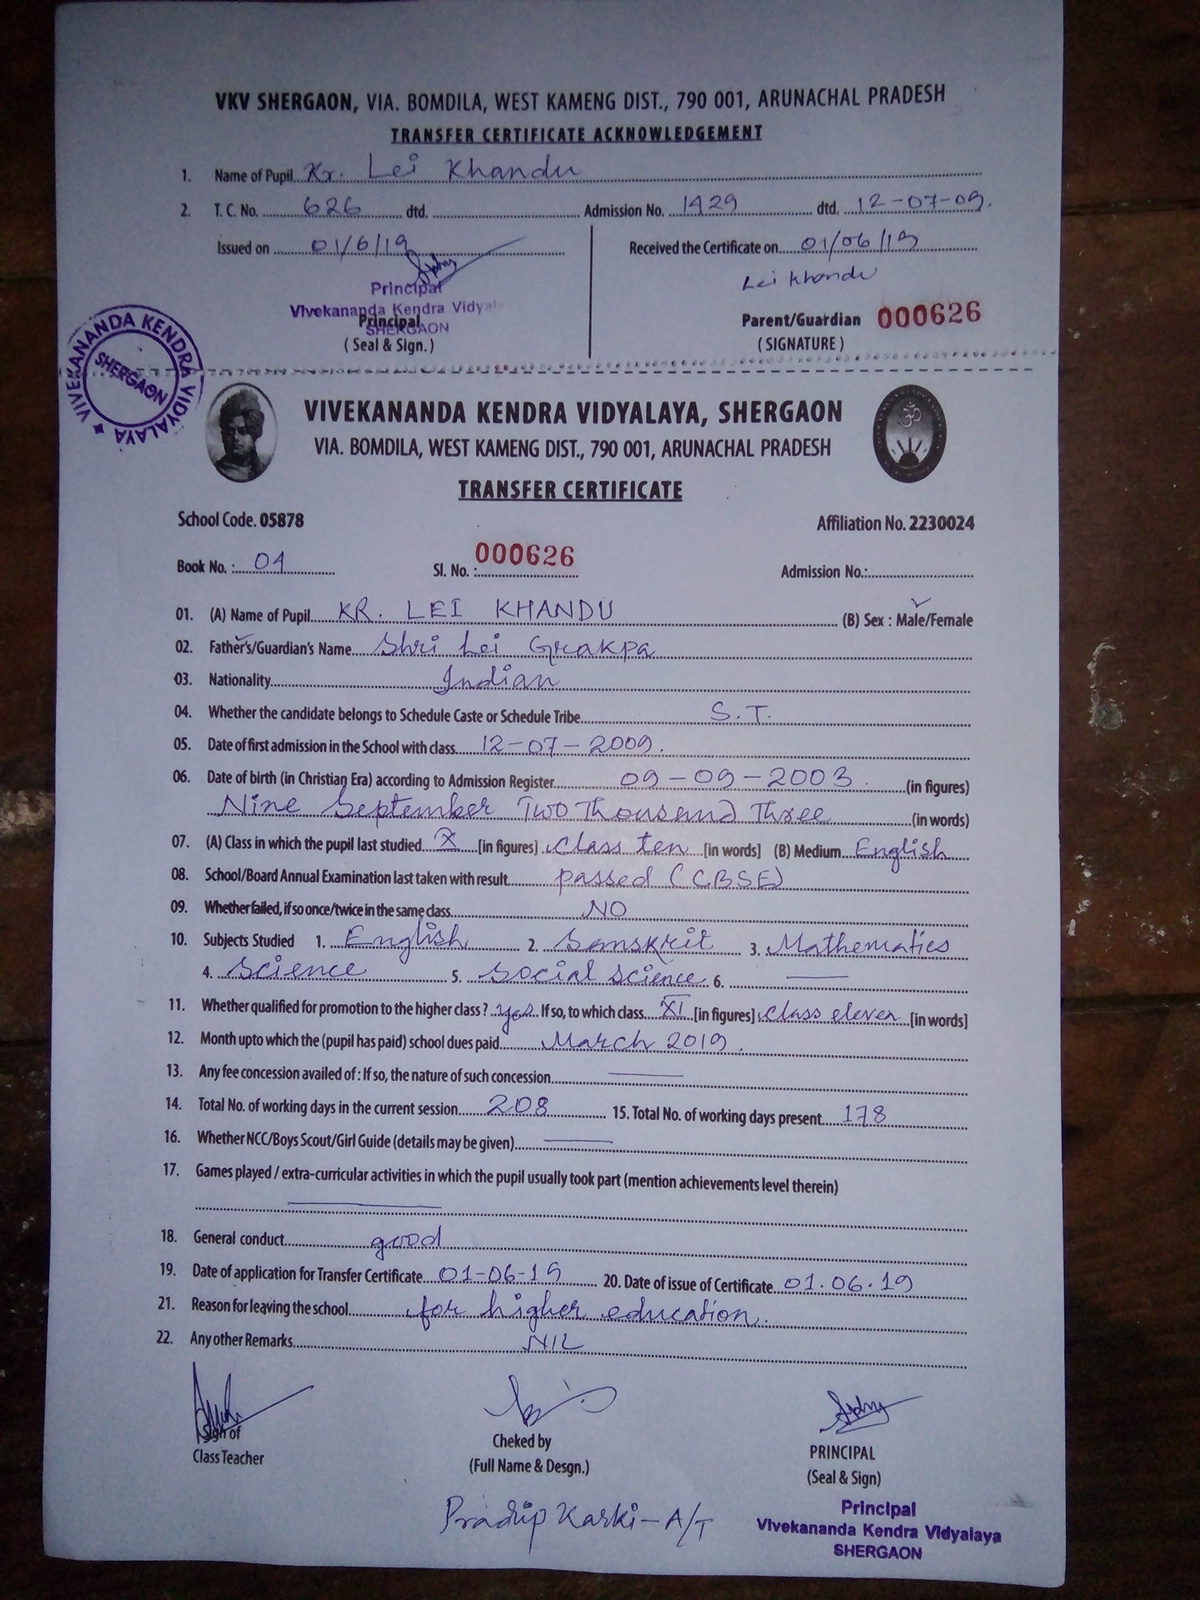 VKV SHERGAON, VIA. BOMDILA, WEST KAMENG DIST., 790 001, ARUNACHAL PRADESH
TRANSFER CERTIFICATE ACKNOWLEDGEMENT
1. Name of Pupil Kr. Lei Khandu
2. T. C. No. 626 dtd. Admission No. 1429 dtd. 12-07-09.
Issued on 01/6/19 Received the Certificate on 01/06/19
Lei Khandu
Principal
Vivekananda Kendra Vidyalaya
SHERGAON
Principal
(Seal & Sign.)
Parent/Guardian 000626
(SIGNATURE)
VIVEKANANDA KENDRA VIDYALAYA
SHERGAON
VIVEKANANDA KENDRA VIDYALAYA, SHERGAON
VIA. BOMDILA, WEST KAMENG DIST., 790 001, ARUNACHAL PRADESH
TRANSFER CERTIFICATE
School Code. 05878 Affiliation No. 2230024
Book No.: 04 Sl. No.: 000626 Admission No.:
01. (A) Name of Pupil KR. LEI KHANDU (B) Sex : Male/Female
02. Father's/Guardian's Name Shri Lei Grakpa
03. Nationality Indian
04. Whether the candidate belongs to Schedule Caste or Schedule Tribe S.T.
05. Date of first admission in the School with class 12-07-2009.
06. Date of birth (in Christian Era) according to Admission Register 09-09-2003. (in figures)
Nine September Two Thousand Three (in words)
07. (A) Class in which the pupil last studied X [in figures] Class ten [in words] (B) Medium English
08. School/Board Annual Examination last taken with result passed (CBSE)
09. Whether failed, if so once/twice in the same class NO
10. Subjects Studied 1. English 2. Sanskrit 3. Mathematics
4. Science 5. Social Science 6.
11. Whether qualified for promotion to the higher class? yes If so, to which class XI [in figures] Class eleven [in words]
12. Month upto which the (pupil has paid) school dues paid March 2019.
13. Any fee concession availed of : If so, the nature of such concession
14. Total No. of working days in the current session 208 15. Total No. of working days present 178
16. Whether NCC/Boys Scout/Girl Guide (details may be given)
17. Games played / extra-curricular activities in which the pupil usually took part (mention achievements level therein)
18. General conduct good
19. Date of application for Transfer Certificate 01-06-19 20. Date of issue of Certificate 01.06.19
21. Reason for leaving the school for higher education.
22. Any other Remarks NIL
Sign of
Class Teacher
Cheked by
(Full Name & Desgn.)
Pradip Karki - A/T
PRINCIPAL
(Seal & Sign)
Principal
Vivekananda Kendra Vidyalaya
SHERGAON